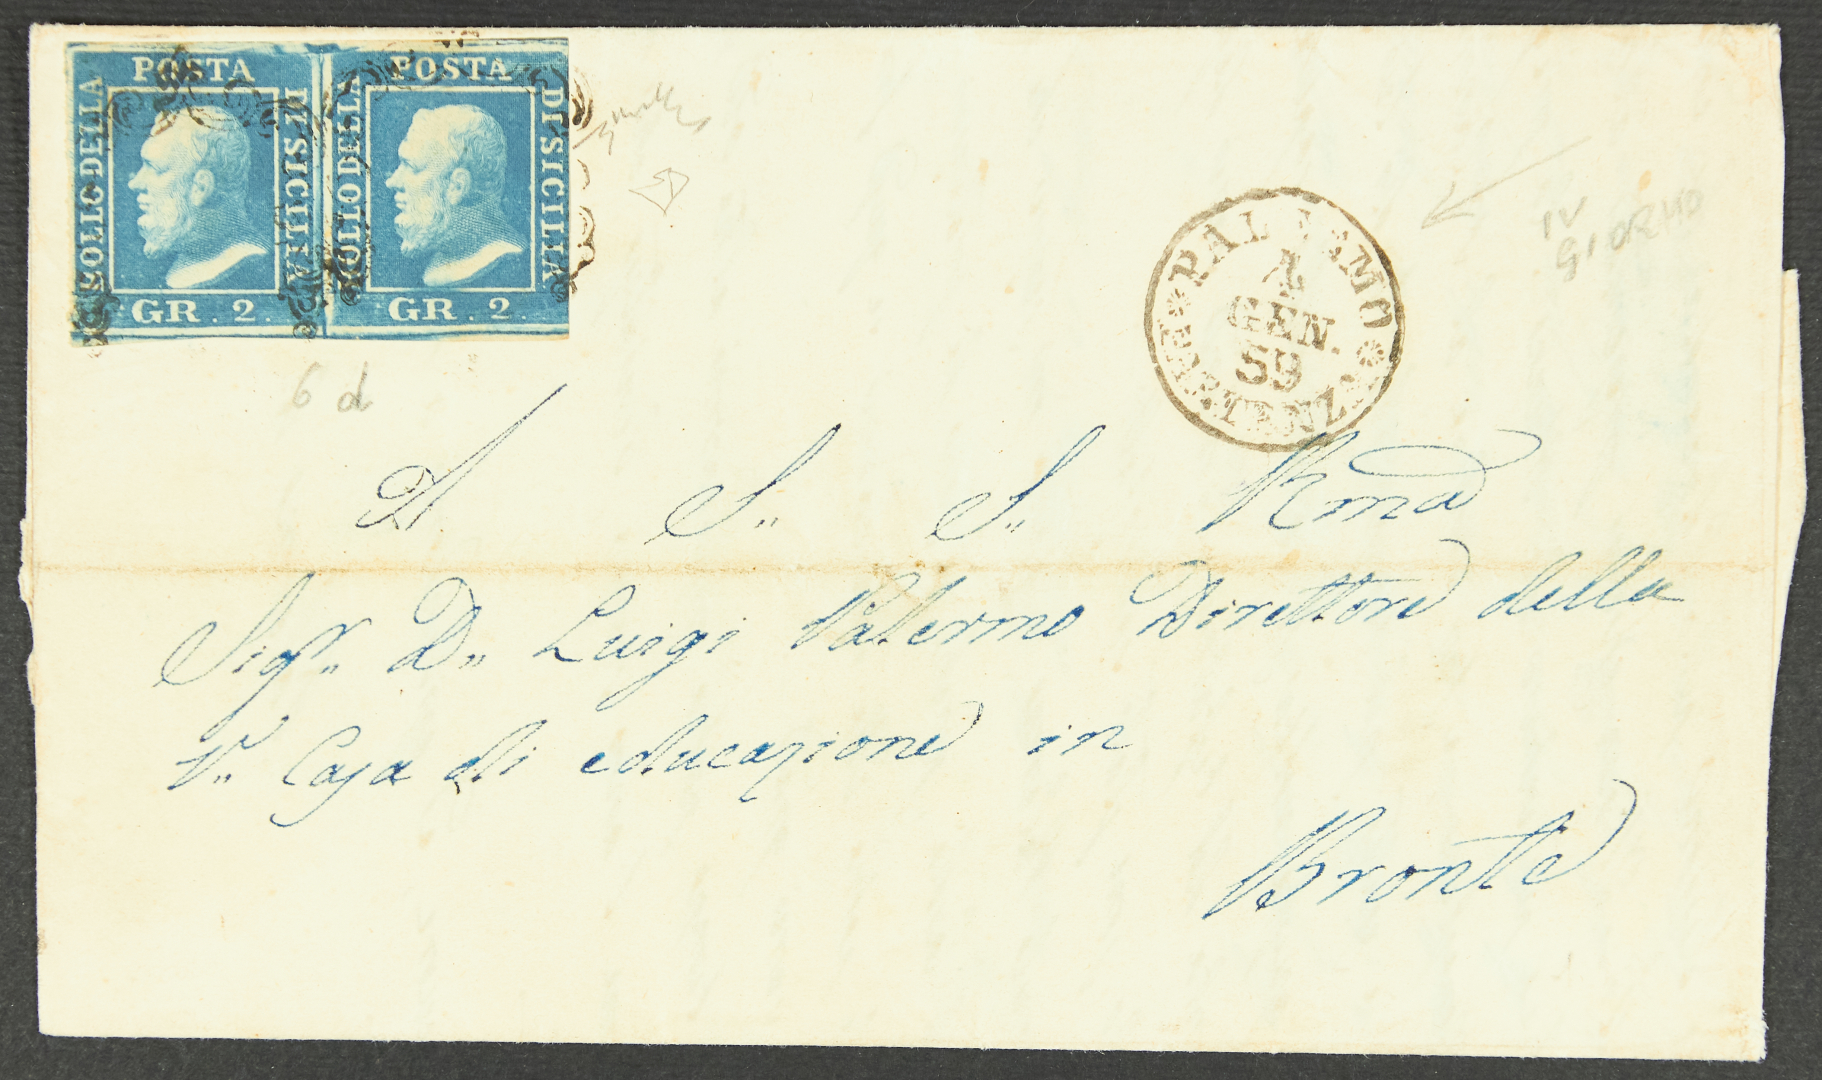 POSTA
BOLLO DELLA
DI SICILIA
GR. 2.
POSTA
BOLLO DELLA
DI SICILIA
GR. 2.
6 d
PALERMO
4
GEN.
59
PARTENZA
IV
GIORNO
A S.. S. Rma
Sigr.. D.. Luigi Palermo Direttore della
V.. Casa di educazione in
Bronte